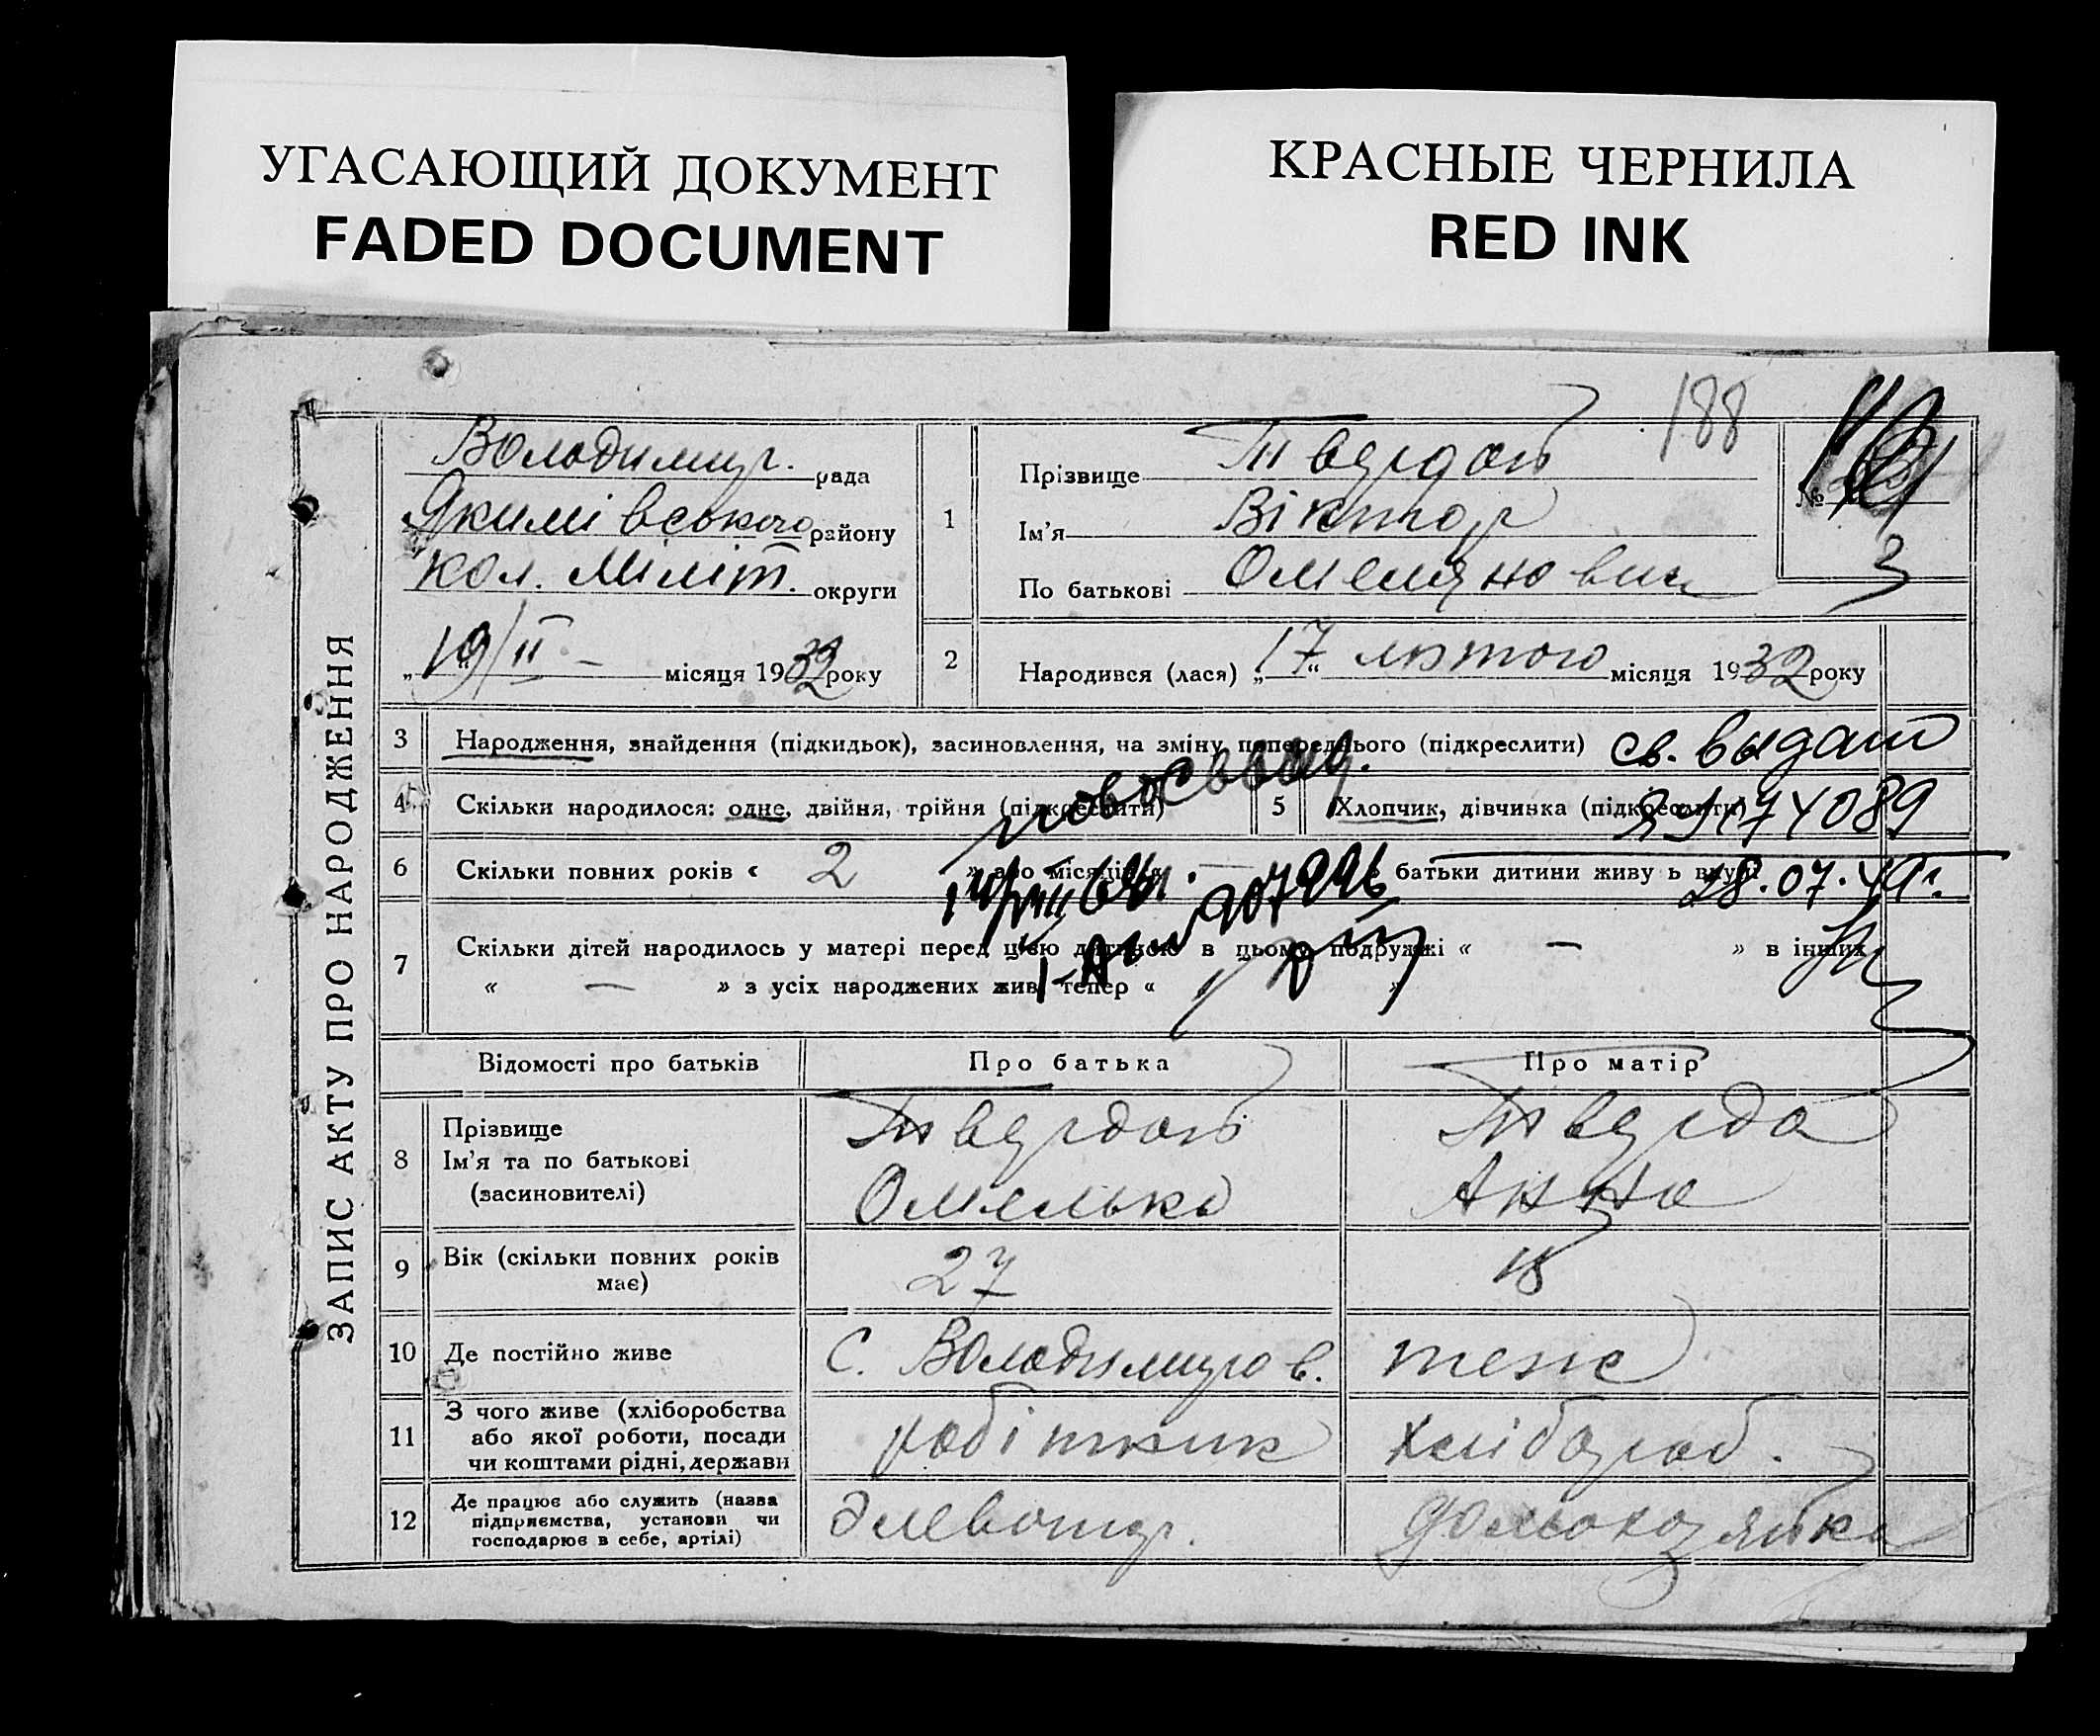 УГАСАЮЩИЙ ДОКУМЕНТ
FADED DOCUMENT
КРАСНЫЕ ЧЕРНИЛА
RED INK
ЗАПИС АКТУ ПРО НАРОДЖЕННЯ
Володимир. рада
Якимівського району
кол. Меліт. округи
„19/II - місяця 1932 року
188
№
3
1
Прізвище Твердой
Ім'я Віктор
По батькові Омелянович
2 Народився (лася) „17“ лютого місяця 1932 року
3 Народження, знайдення (підкидьок), засиновлення, на зміну попереднього (підкреслити) св. выдано
4 Скільки народилося: одне, двійня, трійня (підкреслити) 5 Хлопчик, дівчинка (підкреслити)
6 Скільки повних років « 2 » або місяців — батьки дитини живу ь вкупі
28.07.49г.
7 Скільки дітей народилось у матері перед цією дитиною в цьому подружжі « — » в інших
« — » з усіх народжених живі тепер « »
Відомості про батьків Про батька Про матір
8 Прізвище Твердой Тверда
Ім'я та по батькові
(засиновителі) Омелько Анна
9 Вік (скільки повних років має) 27 18
10 Де постійно живе С. Володимиров. теж
11 З чого живе (хліборобства
або якої роботи, посади
чи коштами рідні, держави робітник хлібороб.
12 Де працює або служить (назва
підприємства, установи чи
господарює в себе, артілі) Элеватор. домохозяйка